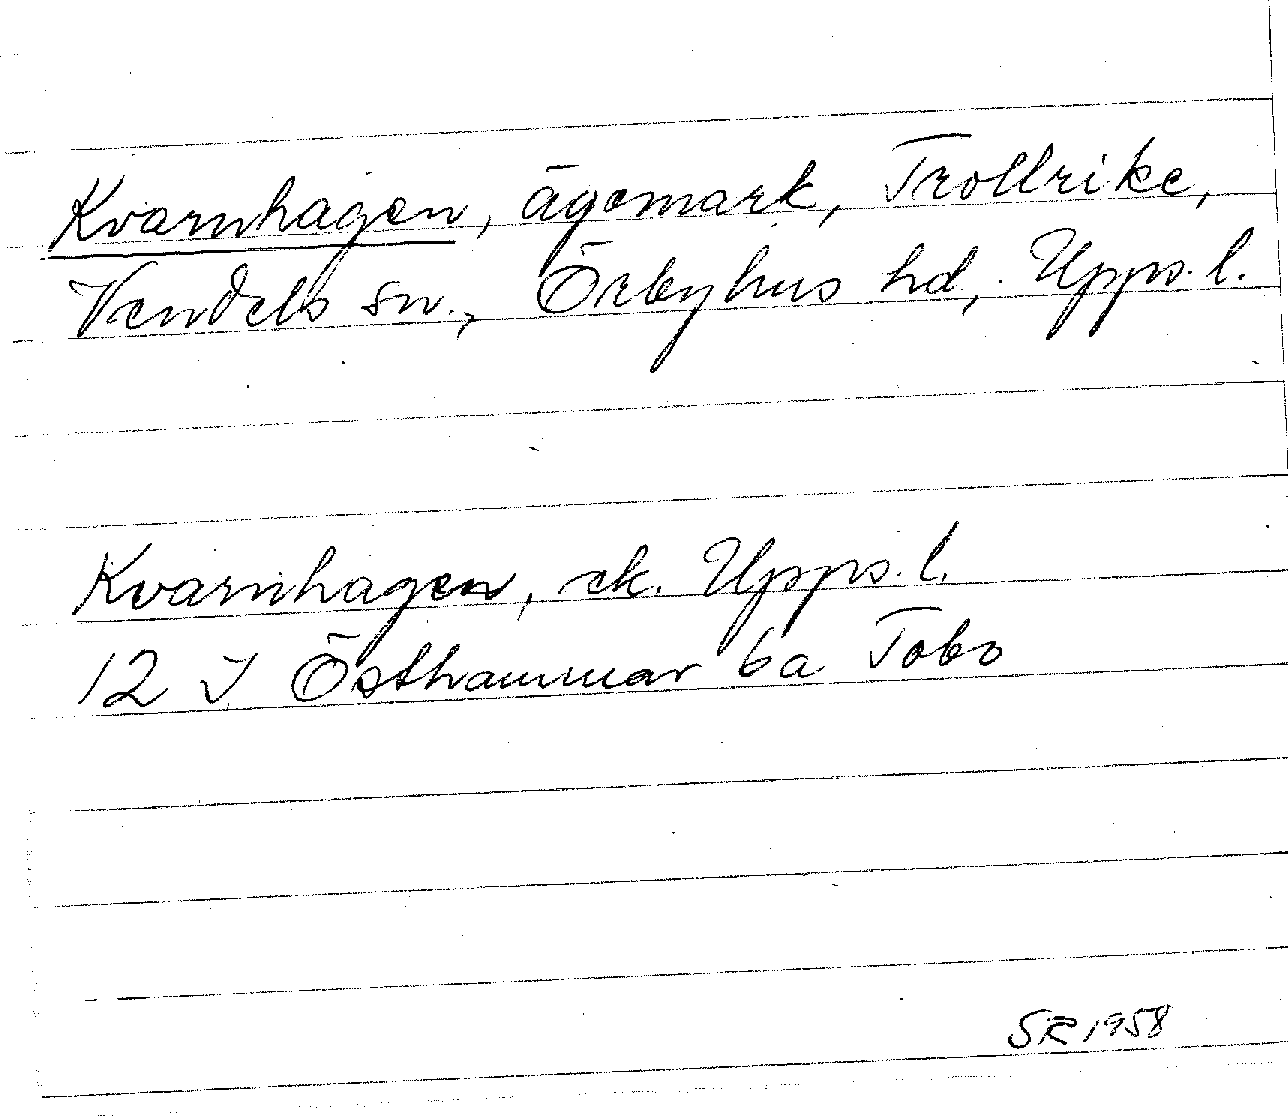 Kvarnhagen, ägomark, Trollrike,
Vendels sn., Örbyhus hd, Upps. l.
Kvarnhagen, ek. Upps. l.
12 I Östhammar 6a Tobo
SR 1958